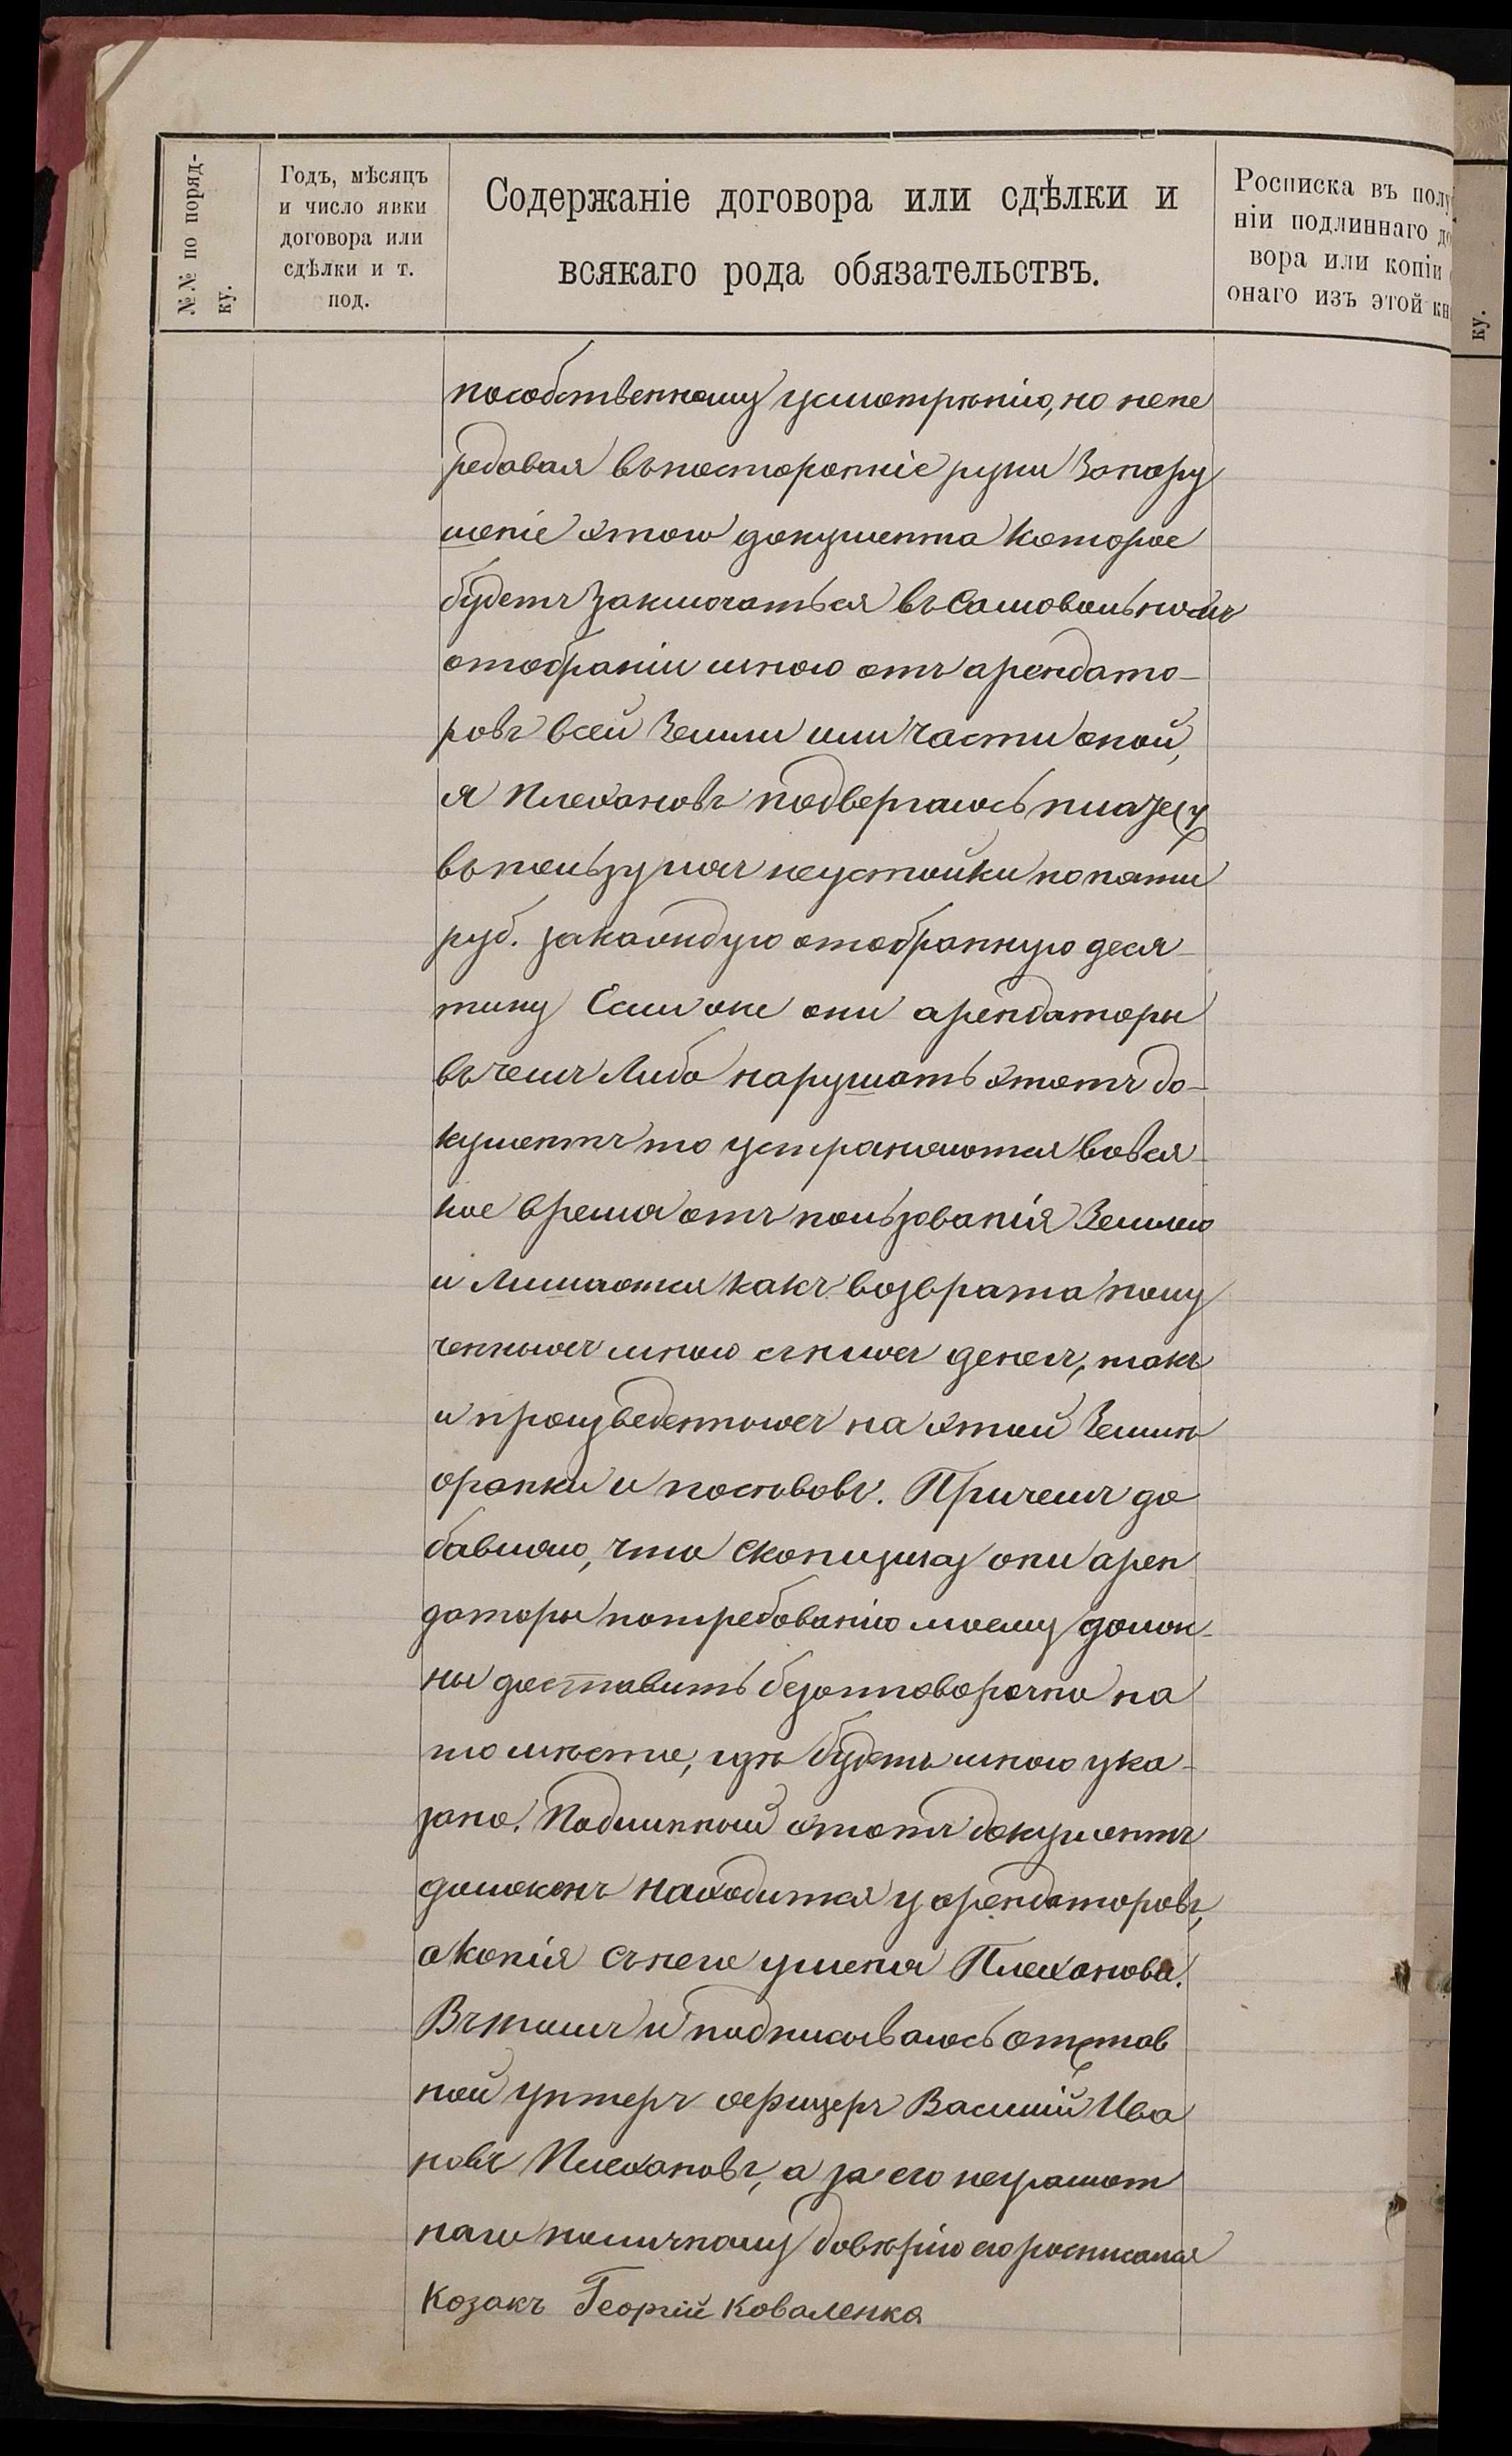 №№ по поряд-
ку.
Годъ, мѣсяцъ
и число явки
договора или
сдѣлки и т.
под.
Содержаніе договора или сдѣлки и
всякаго рода обязательствъ.
Росписка въ полу
ніи подлиннаго до
вора или копіи
онаго изъ этой кн
ку.
пособственному усмотрѣнію, но непе
редавая въпосторонніе руки Занару
шеніе этого документа Которое
будетъ Заключаться въ Самовольномъ
отобраніи мною отъ арендато-
ровъ всей Земли или части оной,
я Плехановъ подвергаюсь платежу
въпользу ихъ неустойки попяти
руб. закаждую отобранную деся-
тину Если же они арендаторы
въчемъ Либо нарушатъ этотъ до-
кументъ то устраняются вовся-
кое время отъ пользованія Землею
и Лишаются какъ возврата полу
ченныхъ мною съ нихъ денегъ, такъ
и произведенныхъ на этой Землѣ
оранки и посѣвовъ. Причемъ до
бавляю, что Скопщину они арен
даторы потребованію моему долж-
ны доставить безотговорочно на
то мѣсто, гдѣ будетъ мною ука-
зано. Подлинный этотъ документъ
долженъ находится у арендаторовъ,
а Копія съ него у меня Плеханова.
Въ томъ и подписываюсь отстав
ной унтеръ офицеръ Василій Ива
новъ Плехановъ, а за его неграмот
наго поличному довѣрію его росписался
Козакъ Георгій Коваленка